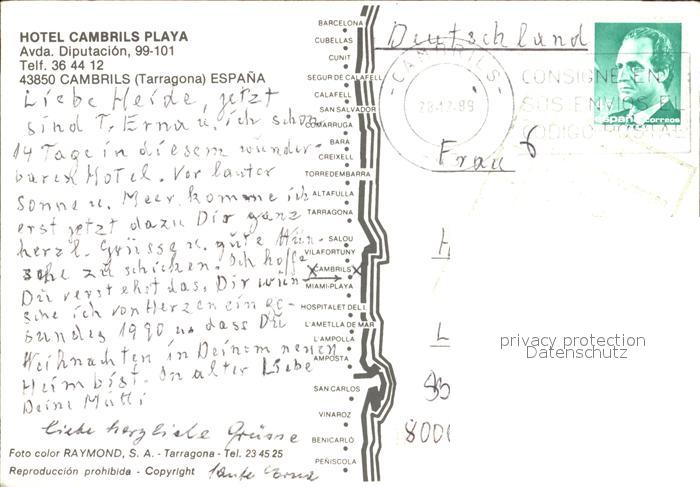 HOTEL CAMBRILS PLAYA
Avda. Diputación, 99-101
Telf. 36 44 12
43850 CAMBRILS (Tarragona) ESPAÑA
Liebe Heide, jetzt
sind T. Erna u. ich schon
14 Tage in diesem wunder-
baren Hotel. Vor lauter
Sonne u. Meer komme ich
erst jetzt dazu Dir ganz
herzl. Grüsse u. gute Wün-
sche zu schicken. Ich hoffe
Du verstehst das. Dir wün-
sche ich von Herzen ein ge-
sundes 1990 u. dass Du
Weihnachten in Deinem neuen
Heim bist. In alter Liebe
Deine Mutti
liebe herzliche Grüsse
Tante Erna
Foto color RAYMOND, S. A. - Tarragona - Tel. 23 45 25
Reproducción prohibida - Copyright
BARCELONA
CUBELLAS
CUNIT
SEGUR DE CALAFELL
CALAFELL
SAN SALVADOR
COMARRUGA
BARA
CREIXELL
TORREDEMBARRA
ALTAFULLA
TARRAGONA
SALOU
VILAFORTUNY
CAMBRILS
MIAMI-PLAYA
HOSPITALET DEL I.
L'AMETLLA DE MAR
L'AMPOLLA
AMPOSTA
SAN CARLOS
VINAROZ
BENICARLÓ
PEÑISCOLA
Deutschland
- CAMBRILS -
28.12.89
CONSIGNE EN
SUS ENVIOS EL
CODIGO POSTAL
españa correos
Frau
H
L
800
privacy protection
Datenschutz